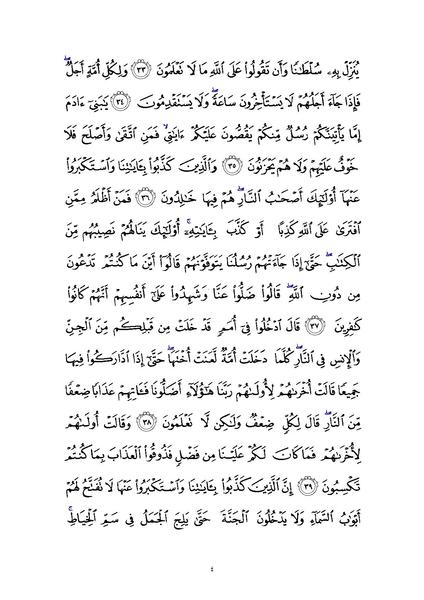 يُنَزِّلْ بِهِۦ سُلْطَٰنًا وَأَن تَقُولُوا۟ عَلَى ٱللَّهِ مَا لَا تَعْلَمُونَ ٣٣ وَلِكُلِّ أُمَّةٍ أَجَلٌ ۖ
فَإِذَا جَآءَ أَجَلُهُمْ لَا يَسْتَأْخِرُونَ سَاعَةً ۖ وَلَا يَسْتَقْدِمُونَ ٣٤ يَٰبَنِىٓ ءَادَمَ
إِمَّا يَأْتِيَنَّكُمْ رُسُلٌ مِّنكُمْ يَقُصُّونَ عَلَيْكُمْ ءَايَٰتِى ۙ فَمَنِ ٱتَّقَىٰ وَأَصْلَحَ فَلَا
خَوْفٌ عَلَيْهِمْ وَلَا هُمْ يَحْزَنُونَ ٣٥ وَٱلَّذِينَ كَذَّبُوا۟ بِـَٔايَٰتِنَا وَٱسْتَكْبَرُوا۟
عَنْهَآ أُو۟لَٰٓئِكَ أَصْحَٰبُ ٱلنَّارِ ۖ هُمْ فِيهَا خَٰلِدُونَ ٣٦ فَمَنْ أَظْلَمُ مِمَّنِ
ٱفْتَرَىٰ عَلَى ٱللَّهِ كَذِبًا أَوْ كَذَّبَ بِـَٔايَٰتِهِۦٓ ۚ أُو۟لَٰٓئِكَ يَنَالُهُمْ نَصِيبُهُم مِّنَ
ٱلْكِتَٰبِ ۖ حَتَّىٰٓ إِذَا جَآءَتْهُمْ رُسُلُنَا يَتَوَفَّوْنَهُمْ قَالُوٓا۟ أَيْنَ مَا كُنتُمْ تَدْعُونَ
مِن دُونِ ٱللَّهِ ۖ قَالُوا۟ ضَلُّوا۟ عَنَّا وَشَهِدُوا۟ عَلَىٰٓ أَنفُسِهِمْ أَنَّهُمْ كَانُوا۟
كَٰفِرِينَ ٣٧ قَالَ ٱدْخُلُوا۟ فِىٓ أُمَمٍ قَدْ خَلَتْ مِن قَبْلِكُم مِّنَ ٱلْجِنِّ
وَٱلْإِنسِ فِى ٱلنَّارِ ۖ كُلَّمَا دَخَلَتْ أُمَّةٌ لَّعَنَتْ أُخْتَهَا ۖ حَتَّىٰٓ إِذَا ٱدَّارَكُوا۟ فِيهَا
جَمِيعًا قَالَتْ أُخْرَىٰهُمْ لِأُولَىٰهُمْ رَبَّنَا هَٰٓؤُلَآءِ أَضَلُّونَا فَـَٔاتِهِمْ عَذَابًا ضِعْفًا
مِّنَ ٱلنَّارِ ۖ قَالَ لِكُلٍّ ضِعْفٌ وَلَٰكِن لَّا تَعْلَمُونَ ٣٨ وَقَالَتْ أُولَىٰهُمْ
لِأُخْرَىٰهُمْ فَمَا كَانَ لَكُمْ عَلَيْنَا مِن فَضْلٍ فَذُوقُوا۟ ٱلْعَذَابَ بِمَا كُنتُمْ
تَكْسِبُونَ ٣٩ إِنَّ ٱلَّذِينَ كَذَّبُوا۟ بِـَٔايَٰتِنَا وَٱسْتَكْبَرُوا۟ عَنْهَا لَا تُفَتَّحُ لَهُمْ
أَبْوَٰبُ ٱلسَّمَآءِ وَلَا يَدْخُلُونَ ٱلْجَنَّةَ حَتَّىٰ يَلِجَ ٱلْجَمَلُ فِى سَمِّ ٱلْخِيَاطِ ۚ
٤